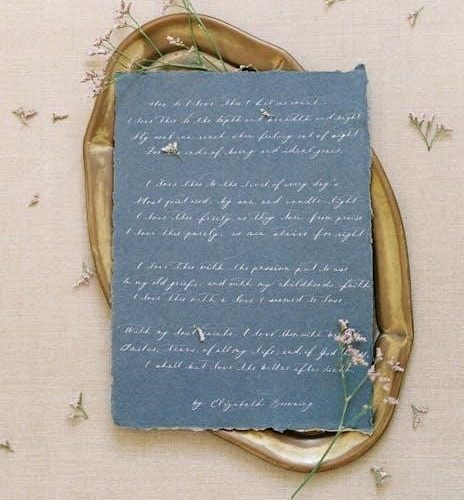 How do I love thee? Let me count
I love thee to the depth and breadth and height
My soul can reach, when feeling out of sight
For ends of being and ideal grace.
I love thee to the level of every day's
Most quiet need, by sun and candle-light
I love thee freely, as they turn from praise
I love thee purely, as men strives for right
I love thee with the passion put to use
to my old griefs, and with my childhoods faith
I love thee with a love I seemed to lose
With my lost saints. I love thee with
Smiles, tears, of all my life; and if God
I shall but love thee better after
by Elizabeth Browning